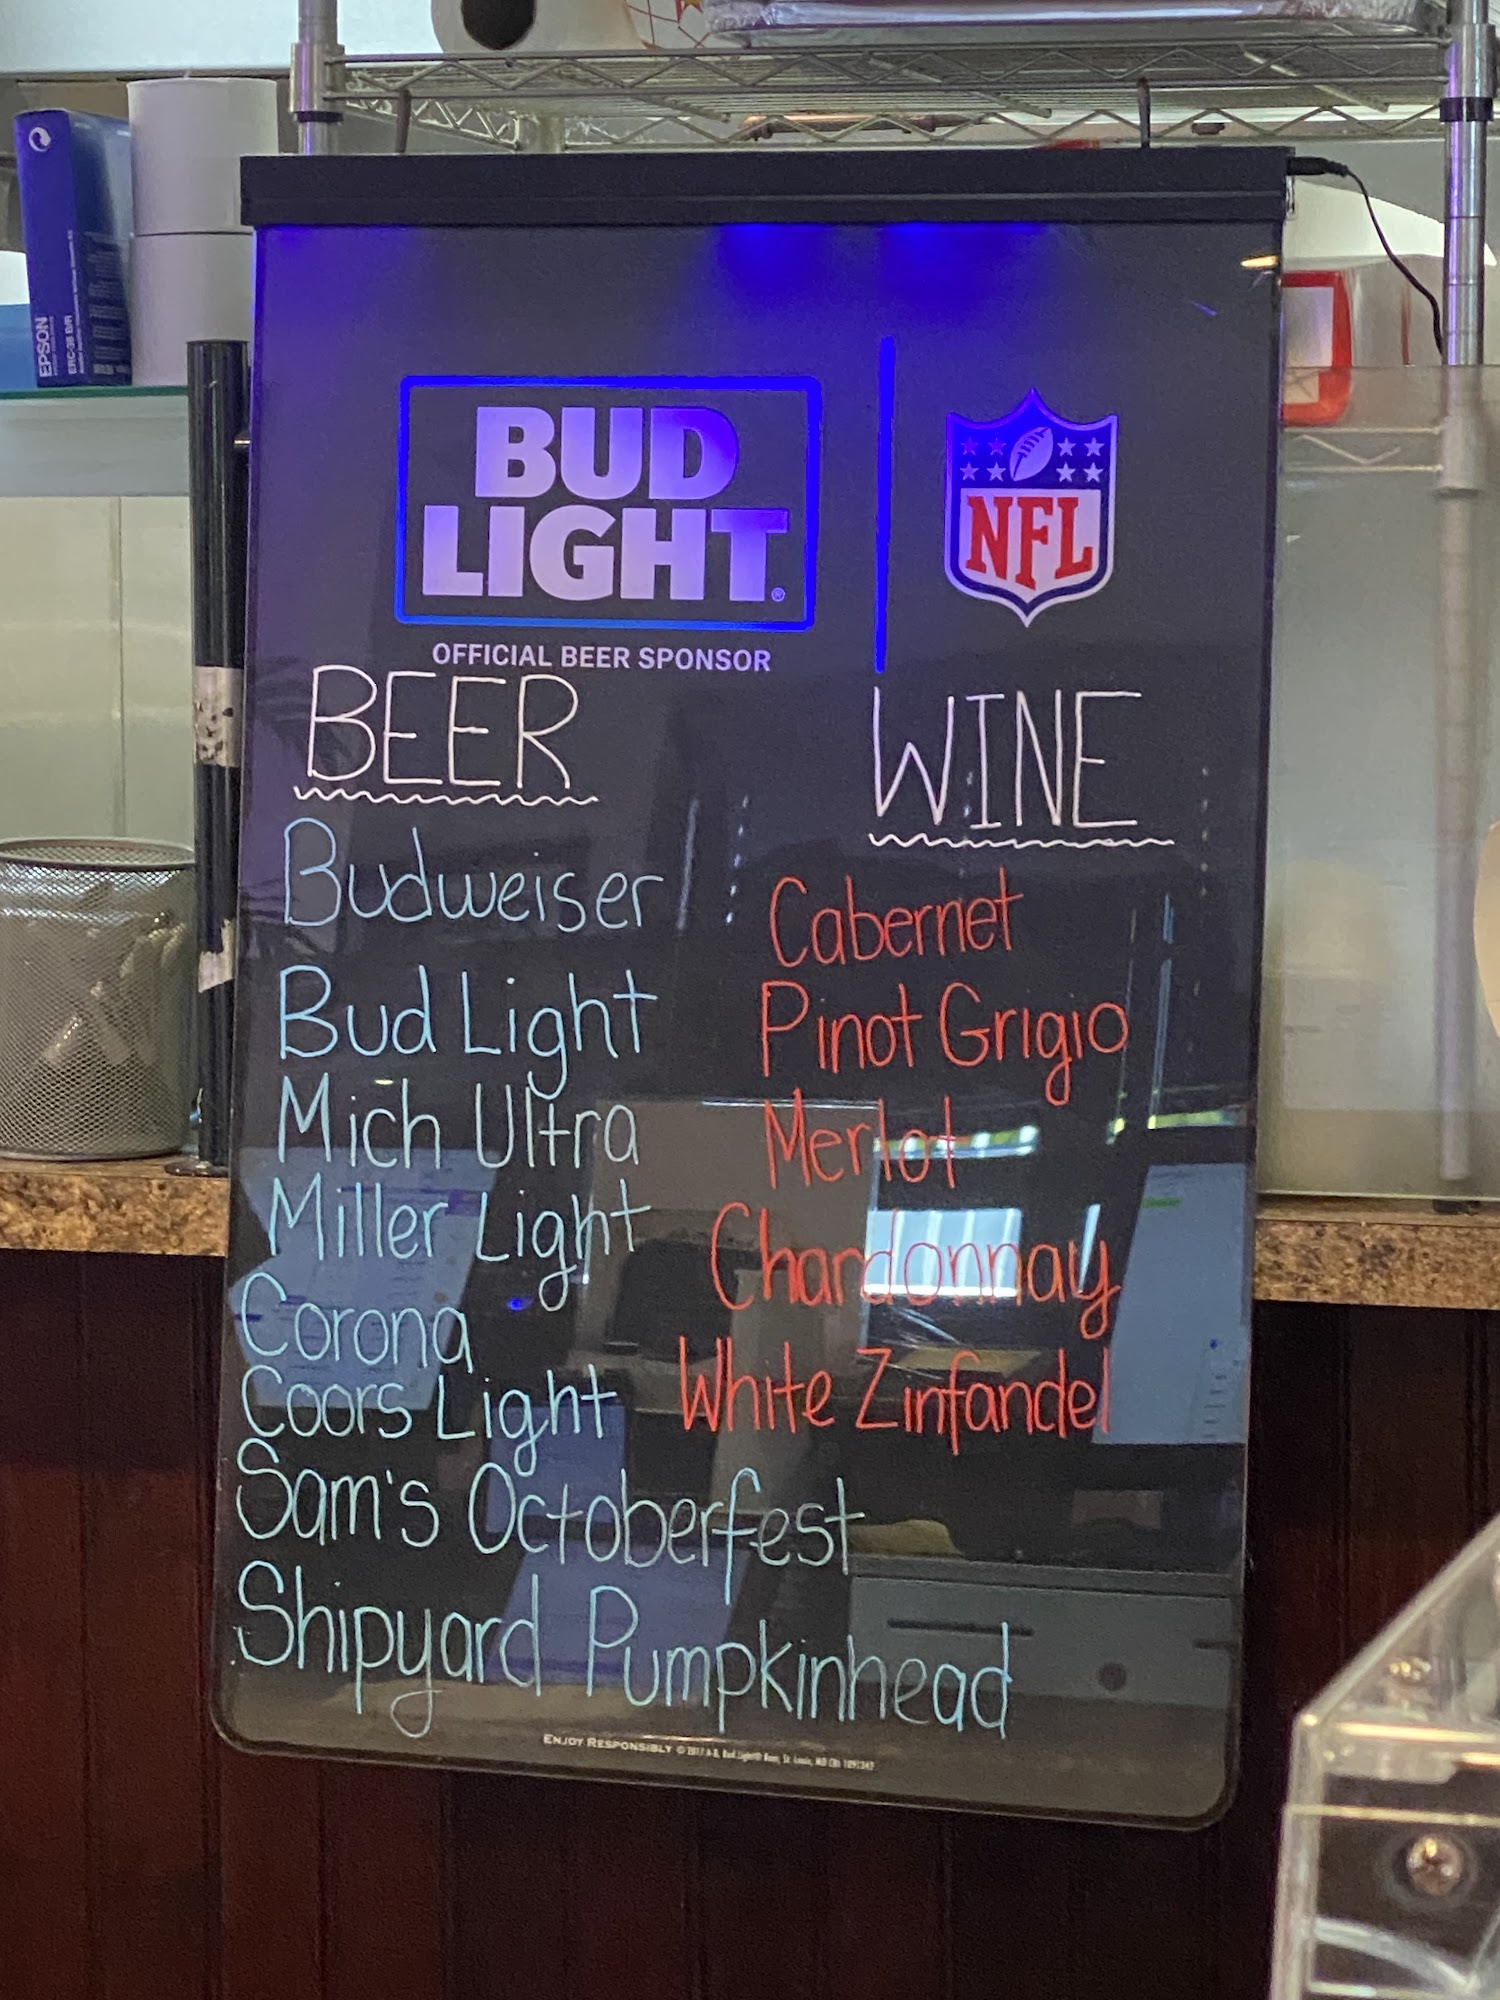 EPSON
ERC-38 B/R
BUD
LIGHT®
NFL
OFFICIAL BEER SPONSOR
BEER
Budweiser
Bud Light
Mich Ultra
Miller Light
Corona
Coors Light
Sam's Octoberfest
Shipyard Pumpkinhead
WINE
Cabernet
Pinot Grigio
Merlot
Chardonnay
White Zinfandel
ENJOY RESPONSIBLY © 2017 A-B, Bud Light® Beer, St. Louis, MO